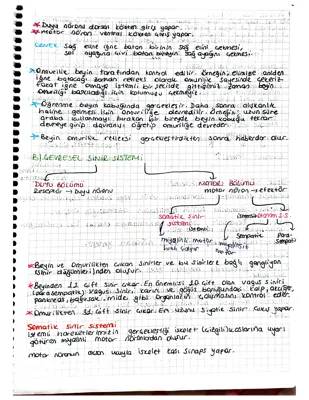 * Duyu nöronu dorsal kökten giriş yapar.
* Motor nöron ventral kökten çıkış yapar.
ÖRNEK Sağ eline iğne batan birinin sağ elini çekmesi,
sol ayağına çivi batan bireyin sağ ayağını çekmesi
* Omurilik beyin tarafından kontrol edilir. Örneğin; elimize aniden
iğne batacağı zaman refleks olarak omurilik sayesinde çekeriz.
Fakat iğne olmaya istemli bir şekilde gittiğimiz zaman beyin
omuriliği baskıladığı için kolumuzu çekmeyiz.
* Öğrenme beyin kabuğunda gerçekleşir. Daha sonra alışkanlık
haline gelmesi için omuriliğe devredilir. Örneğin; uzun süre
araba kullanmayı bırakan bir bireyde, beyin kabuğu tekrar
devreye girip davranışı öğretip omuriliğe devreder.
* Beyin omurilik refleksi gerçekleştikten sonra haberdar olur.
B) ÇEVRESEL SİNİR SİSTEMİ
DUYU BÖLÜMÜ
Reseptör → Duyu nöronu
MOTOR BÖLÜMÜ
motor nöron → efektör
Somatik sinir
sistemi
İstemli
miyelinli motor
Otonom S.S
Sempatik
Para-
Sempatik
* Beyin ve Omurilikten çıkan sinirler ve bu sinirlere bağlı gangliyon
(sinir düğümleri) nden oluşur.
* Beyinden 12 çift sinir çıkar. En önemlisi 10 olan vagus siniri
(parasempatik). Vagus siniri, karın ve göğüs boşluğundaki kalp, akciğer,
pankreas, bağırsak, mide gibi organların çalışmasını kontrol eder.
* Omurilikten 31 çift sinir çıkar. En uzunu siyatik sinir
Somatik sinir sistemi
İstemli hareketlerimizin gerçekleştiği iskelet (çizgili) kaslarına uyarı
götüren miyelinli motor nöronlardan oluşur.
motor nöronun akson ucuyla iskelet kası sinaps yapar.